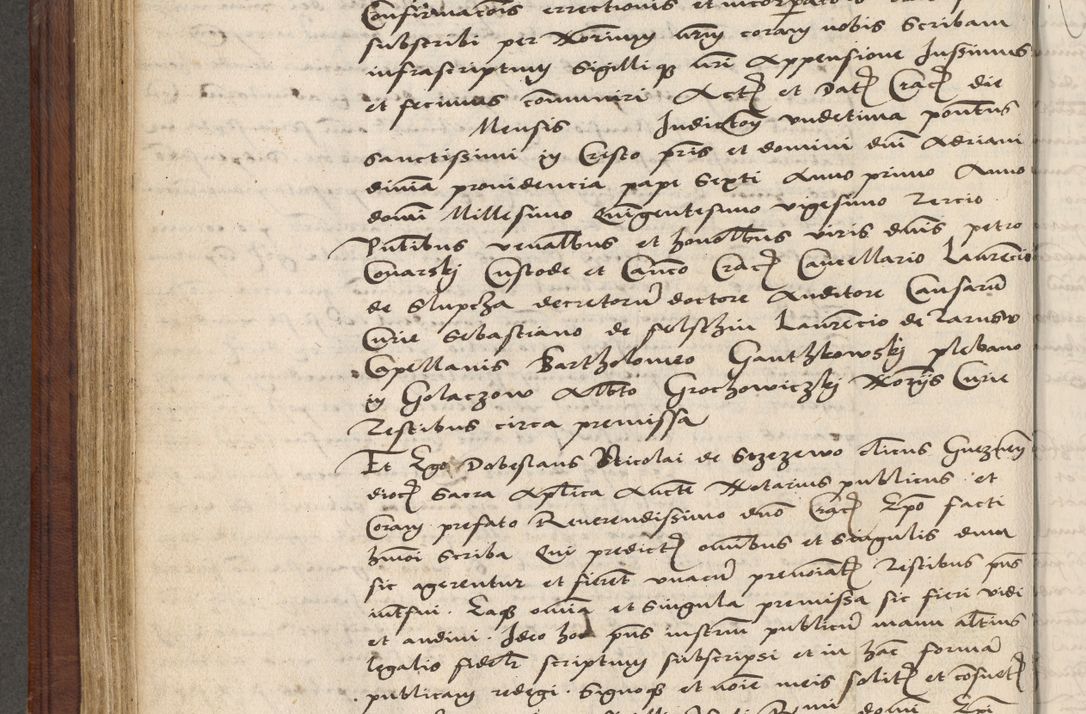 Confirmacōis errectionis et incorpato
subscribi per Norium nr̄m coram nobis Scribam
infrascriptum Sigilliqȝ nr̄i Appensione Jussimus
et fecimus cōmuniri Actȝ et Datȝ Cracȝ die
Mensis Indictōn undetima pontus
sanctissimi in Cristo pr̄is et domini dn̄i Adriani
divīa providencia pape Sexti Anno primo Anno
domī Millesimo Quīgentesimo vigesimo Tercio
Pn̄tibus venālbus et honolbus viris dnīs petro
Conarskj Custode et Canco Cracȝ Cancellario Laurēncio
de Slupcza decretorū doctore Auditore Causarū
Curie Sebastiano de felschin Laurēncio de Tarnow
Capellanis Bartholomeo Ganthkowskj plebano
in Golaczow Albto Grochowiczkj Notrijs Curie
Testibus circa premissa
Et Ego Dobeslaus Nicolai de Strzezewo clicus Gneznen
diocȝ Sacra Aplica Aucte Notarius publicus et
Coram prefato Reverendissimo dno Cracȝ Epō facti
hm̄oi Scriba Qui predictȝ omībus et singulis dum
sic agerentur et fierēt unacū prenoīatȝ Testibus pn̄s
intfui. Eaqȝ omīa et Singula premissa sic fieri vidi
et audivi. Ideo hoc pn̄s instrum̄ publicū manu altius
legalio fidelr scriptum subscripsi et in hāc formā
publicam redegi. Signoqȝ et noīe meis solitȝ et cōsuetȝ